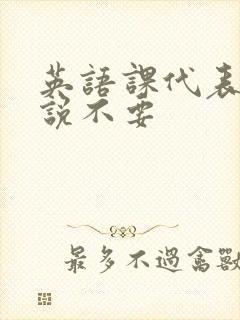 英語課代表
說不要
最多不過禽獸